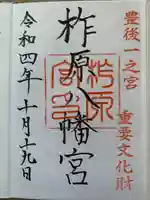 豊後一之宮
重要文化財
柞原八幡宮
令和四年十月十九日